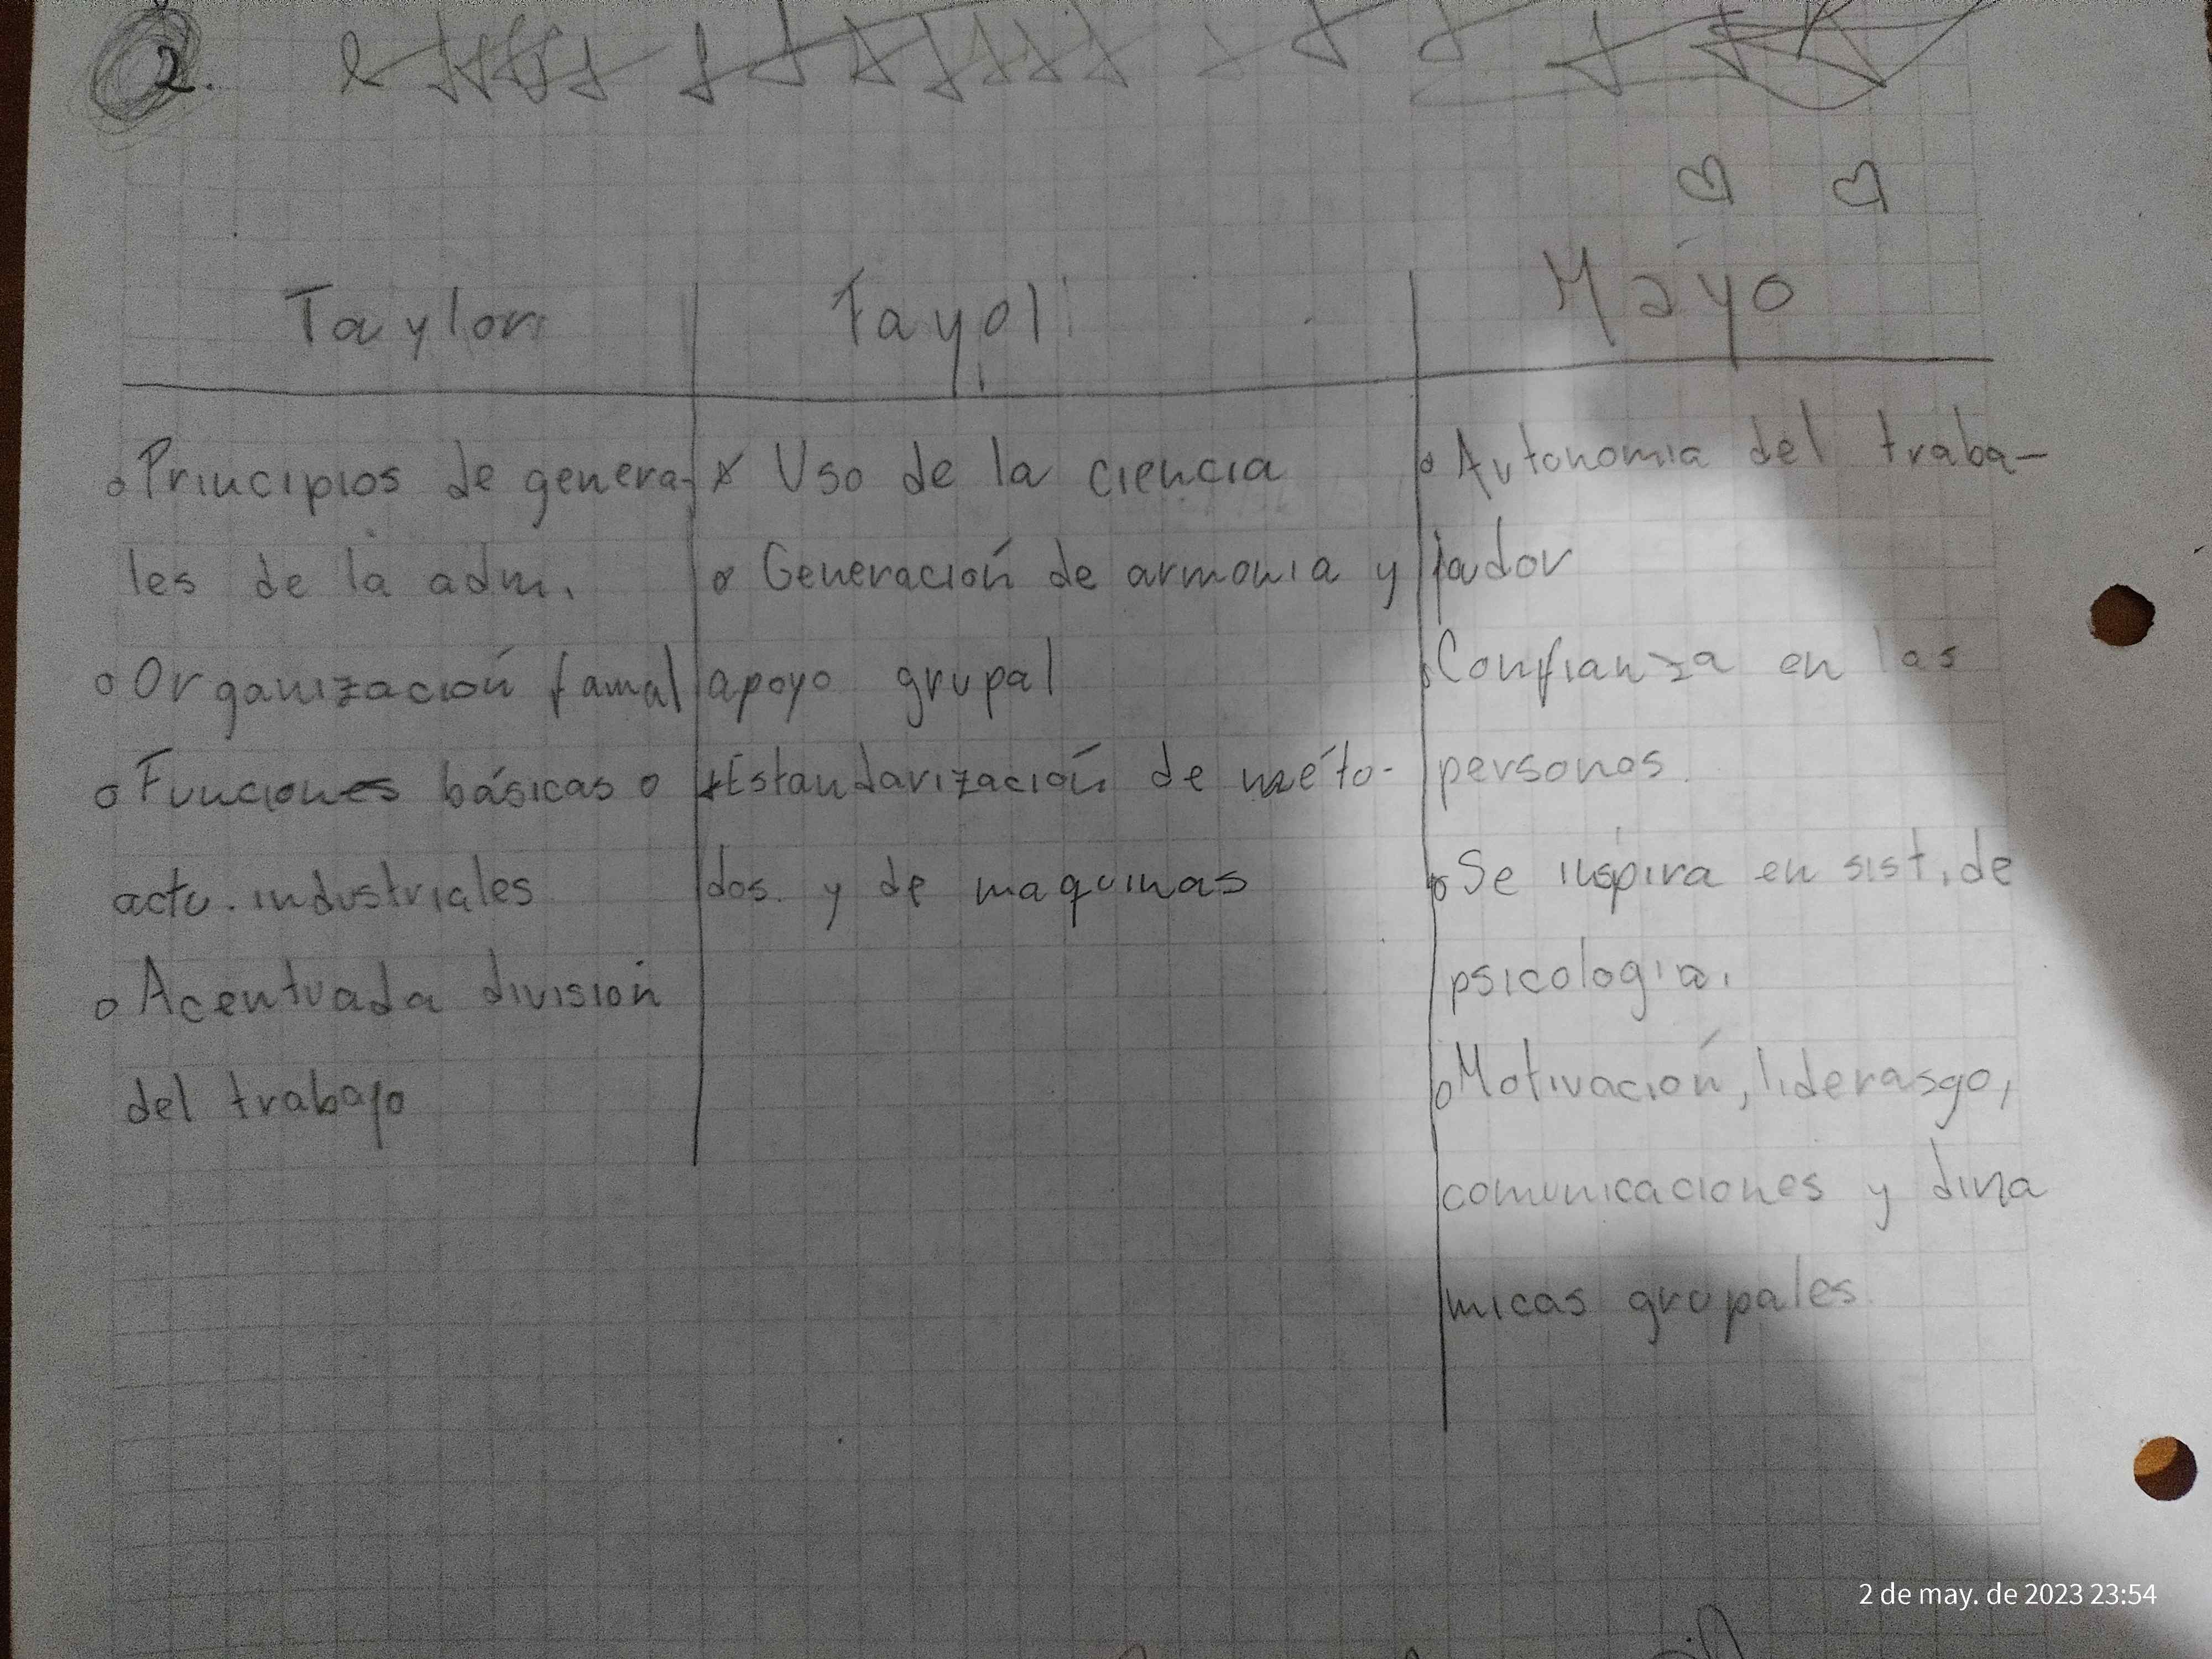 2.
Taylor
Fayol
Mayo
Principios de genera-
les de la adm.
Organización famal
Funciones básicas o
actv. industriales
Acentuada división
del trabajo
Uso de la ciencia
Generación de armonia y
apoyo grupal
Estandarización de méto-
dos. y de maquinas
Autonomia del traba-
jador
Confianza en las
personas.
Se inspira en sist. de
psicologia.
Motivación, liderasgo,
comunicaciones y dina
micas grupales.
2 de may. de 2023 23:54